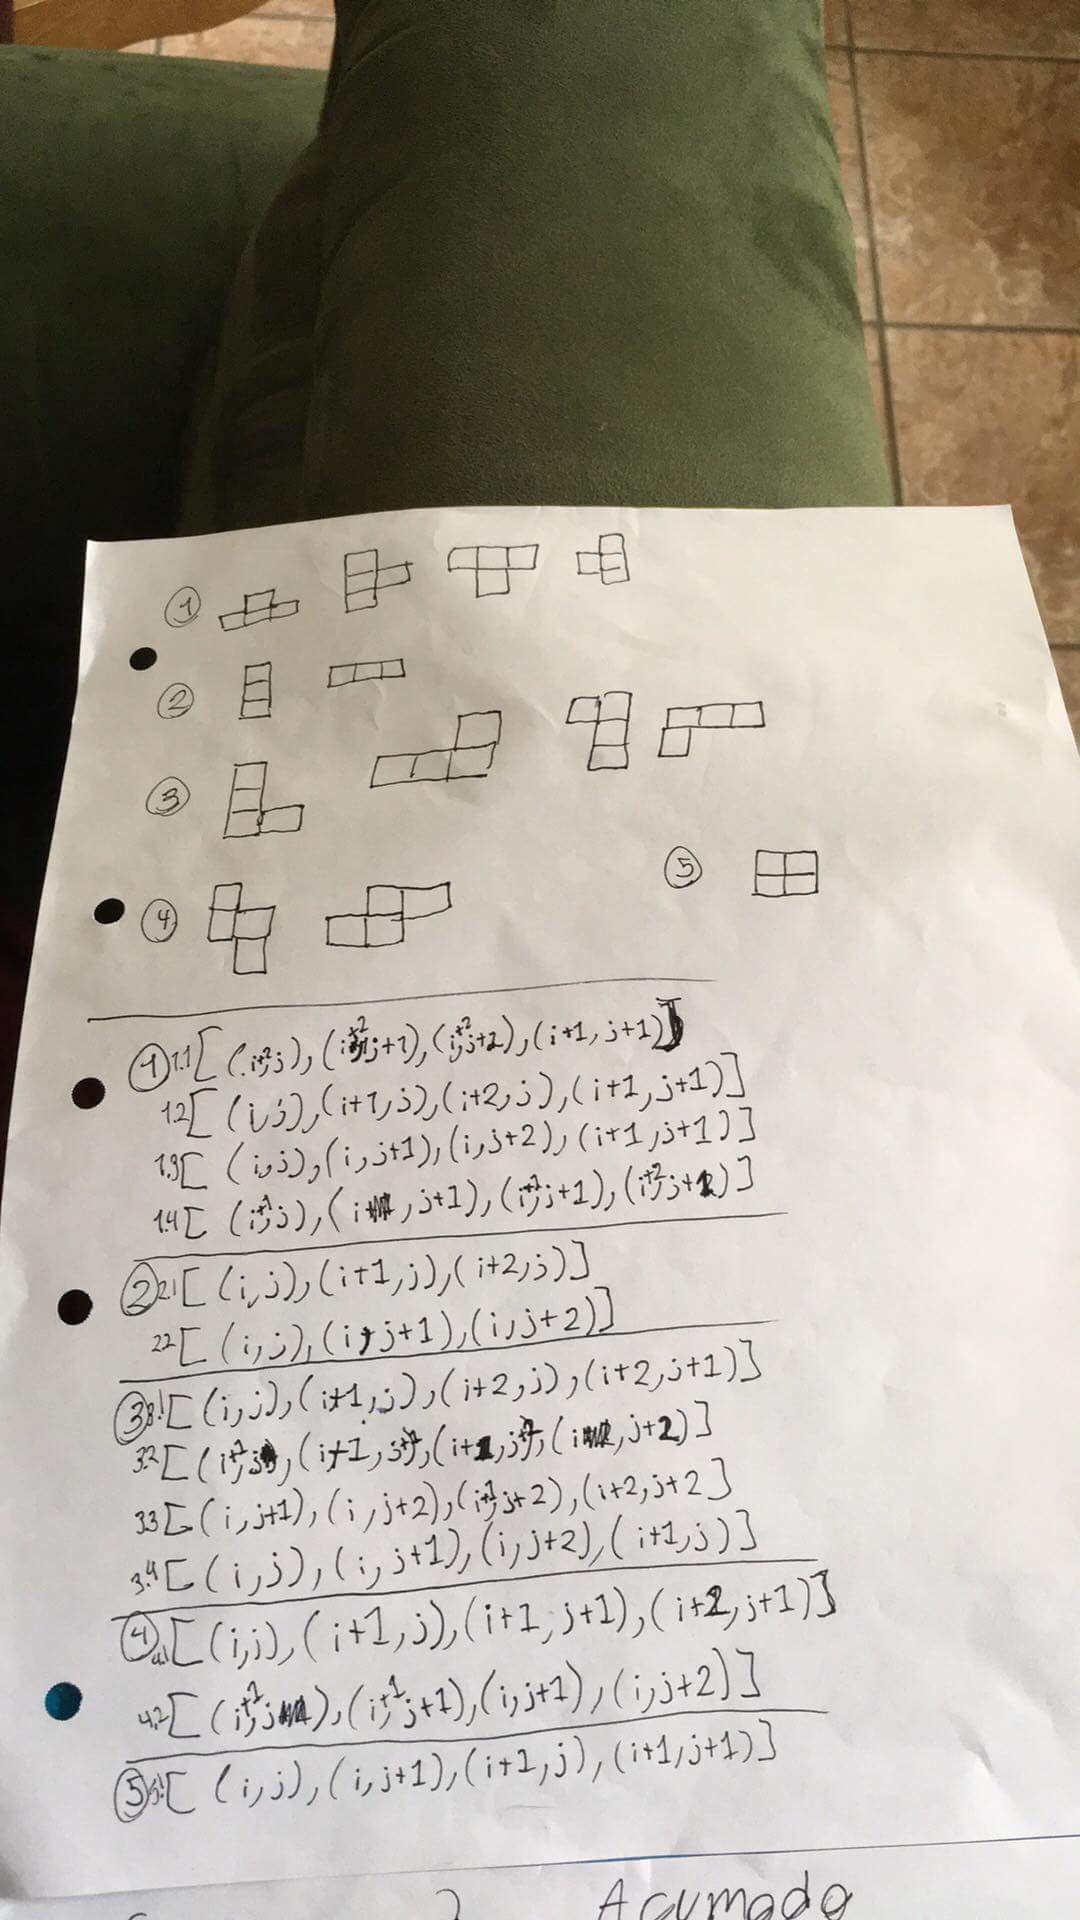 1
2
3
5
4
1 1.1 [(i+2,j),(i+2,j+1),(i+2,j+2),(i+1,j+1)]
1.2 [(i,j),(i+1,j),(i+2,j),(i+1,j+1)]
1.3 [(i,j),(i,j+1),(i,j+2),(i+1,j+1)]
1.4 [(i+1,j),(i,j+1),(i+1,j+1),(i+2,j+1)]
2 2.1 [(i,j),(i+1,j),(i+2,j)]
2.2 [(i,j),(i,j+1),(i,j+2)]
3 3.1 [(i,j),(i+1,j),(i+2,j),(i+2,j+1)]
3.2 [(i+1,j),(i+1,j+1),(i+1,j+2),(i,j+2)]
3.3 [(i,j+1),(i,j+2),(i+1,j+2),(i+2,j+2]
3.4 [(i,j),(i,j+1),(i,j+2),(i+1,j)]
4 4.1 [(i,j),(i+1,j),(i+1,j+1),(i+2,j+1)]
4.2 [(i+1,j),(i+1,j+1),(i,j+1),(i,j+2)]
5 5.1 [(i,j),(i,j+1),(i+1,j),(i+1,j+1)]
Acumado